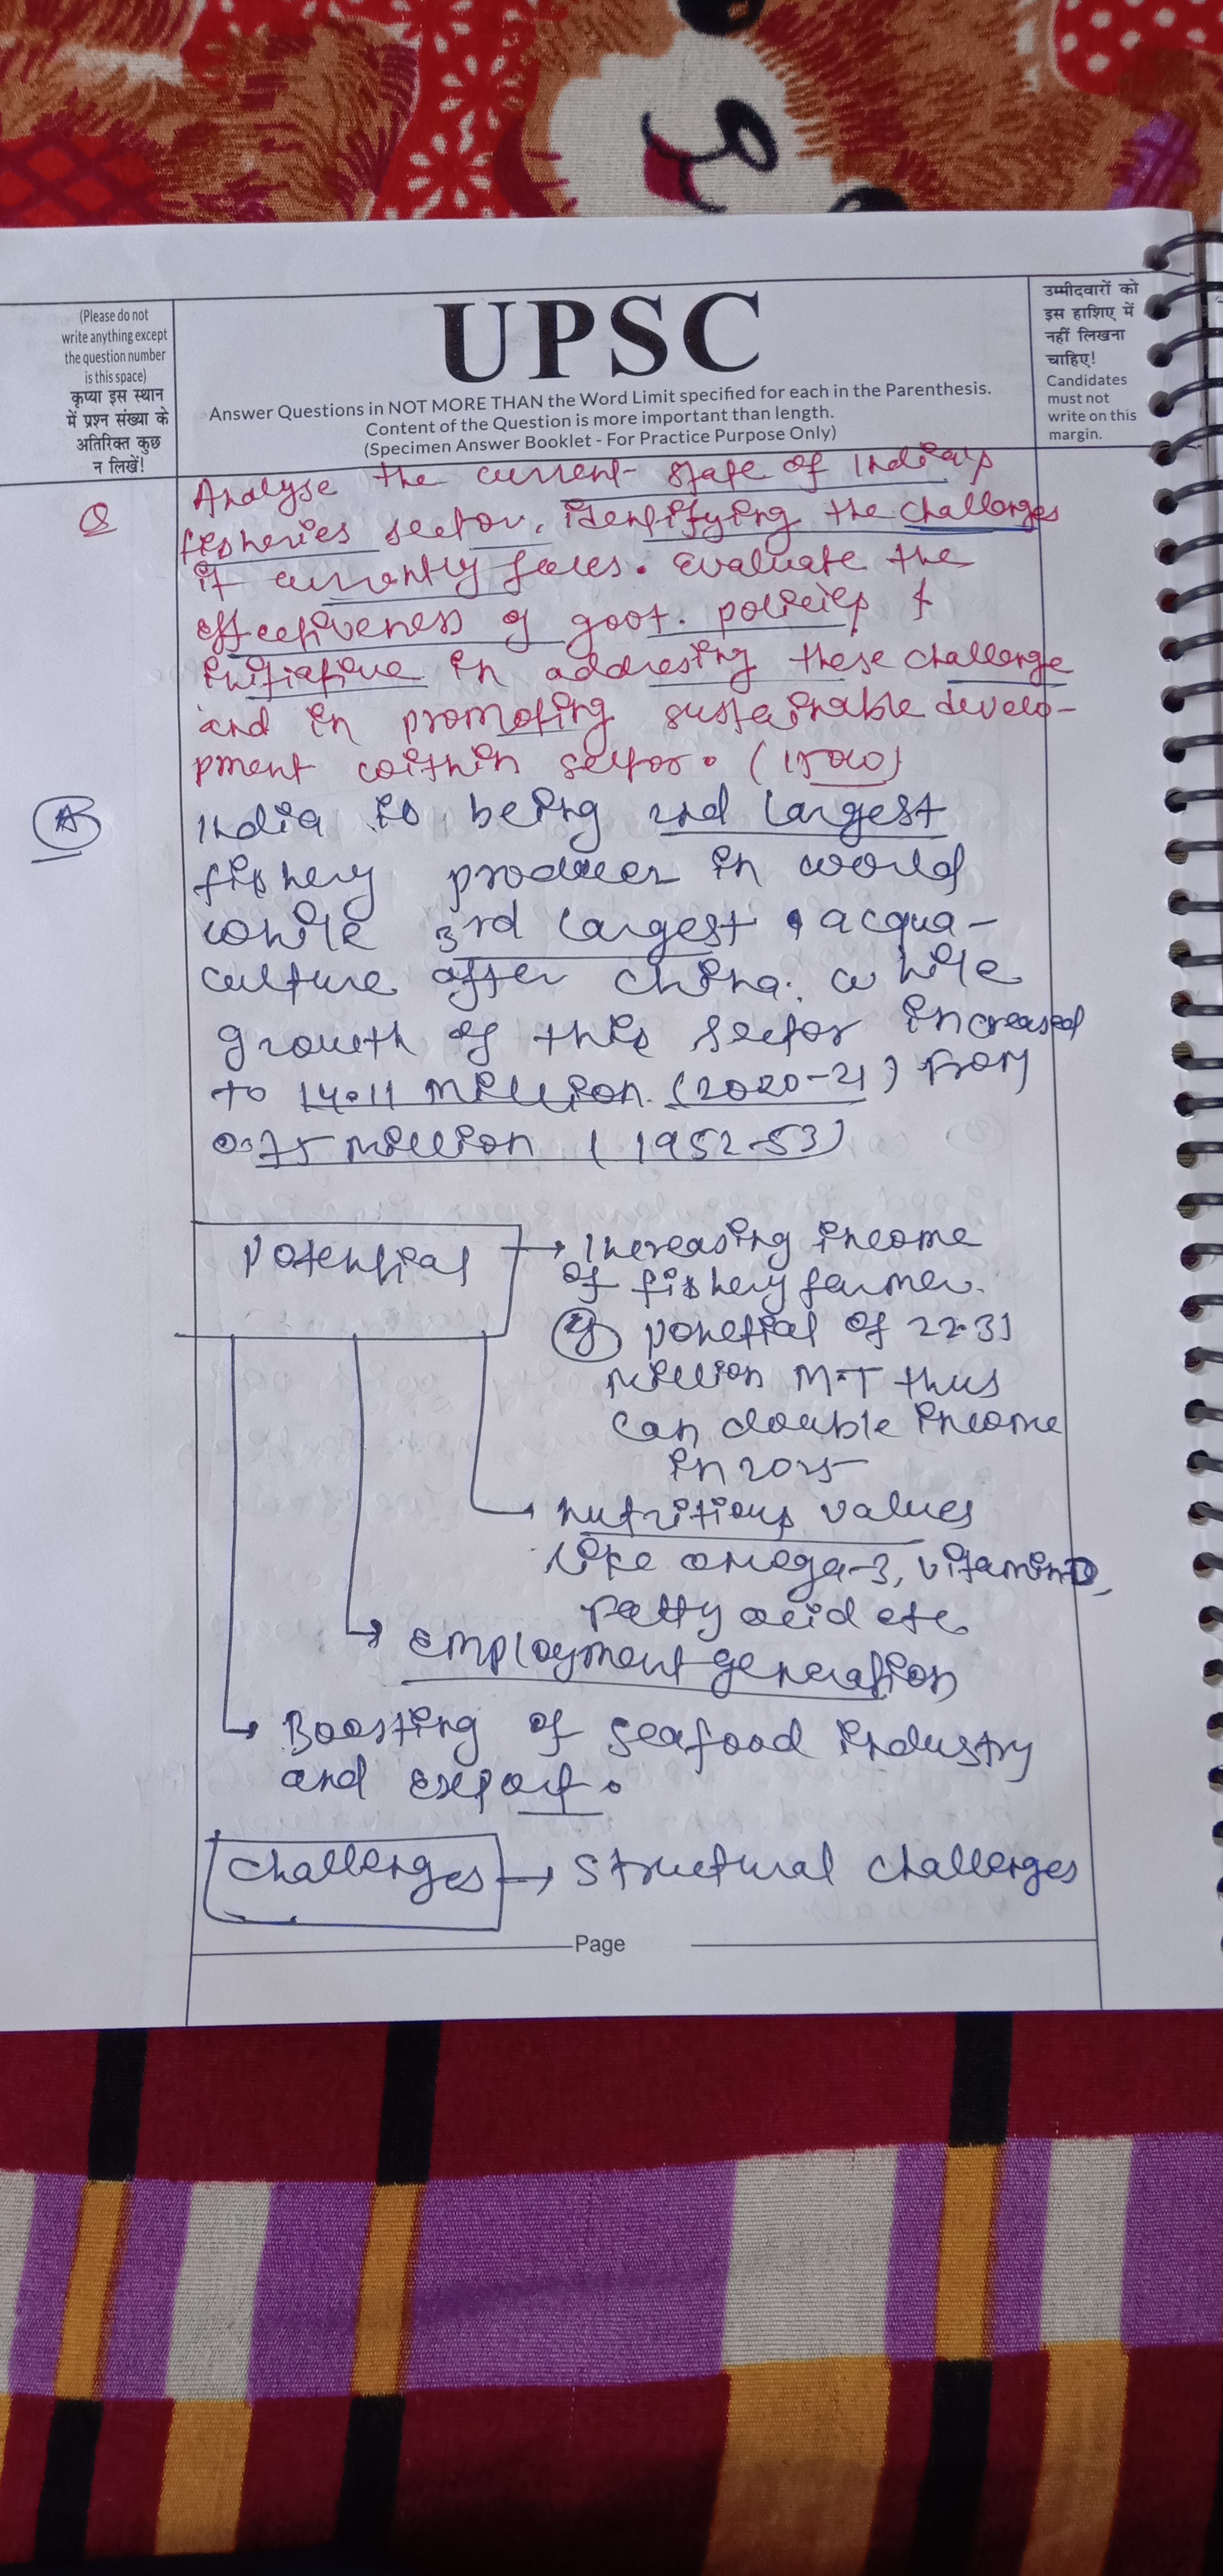 (Please do not
write anything except
the question number
is this space)
कृप्या इस स्थान
में प्रश्न संख्या के
अतिरिक्त कुछ
न लिखें!
UPSC
Answer Questions in NOT MORE THAN the Word Limit specified for each in the Parenthesis.
Content of the Question is more important than length.
(Specimen Answer Booklet - For Practice Purpose Only)
उम्मीदवारों को
इस हाशिए में
नहीं लिखना
चाहिए!
Candidates
must not
write on this
margin.
Q
Analyse the current state of India's
fisheries sector, identifying the challenges
it currently faces. Evaluate the
effectiveness of govt. policies &
initiative in addresing these challenge
and in promoting sustainable develo-
pment within sector. (
A
India is being 2nd largest
fishery producer in world
while 3rd largest acqua-
culture after china. while
growth of this sector increased
to 14.11 million. (2020-21) from
0.75 million (1952-53)
Potential → Increasing income
of fishery farmer.
potential of 22.31
million M.T thus
can double income
in 2025
→ nutritious values
like omega-3, vitamin D,
Fatty acid etc
→ employment generation
→ Boosting of seafood industry
and export.
Challenges → Structural challenges
Page